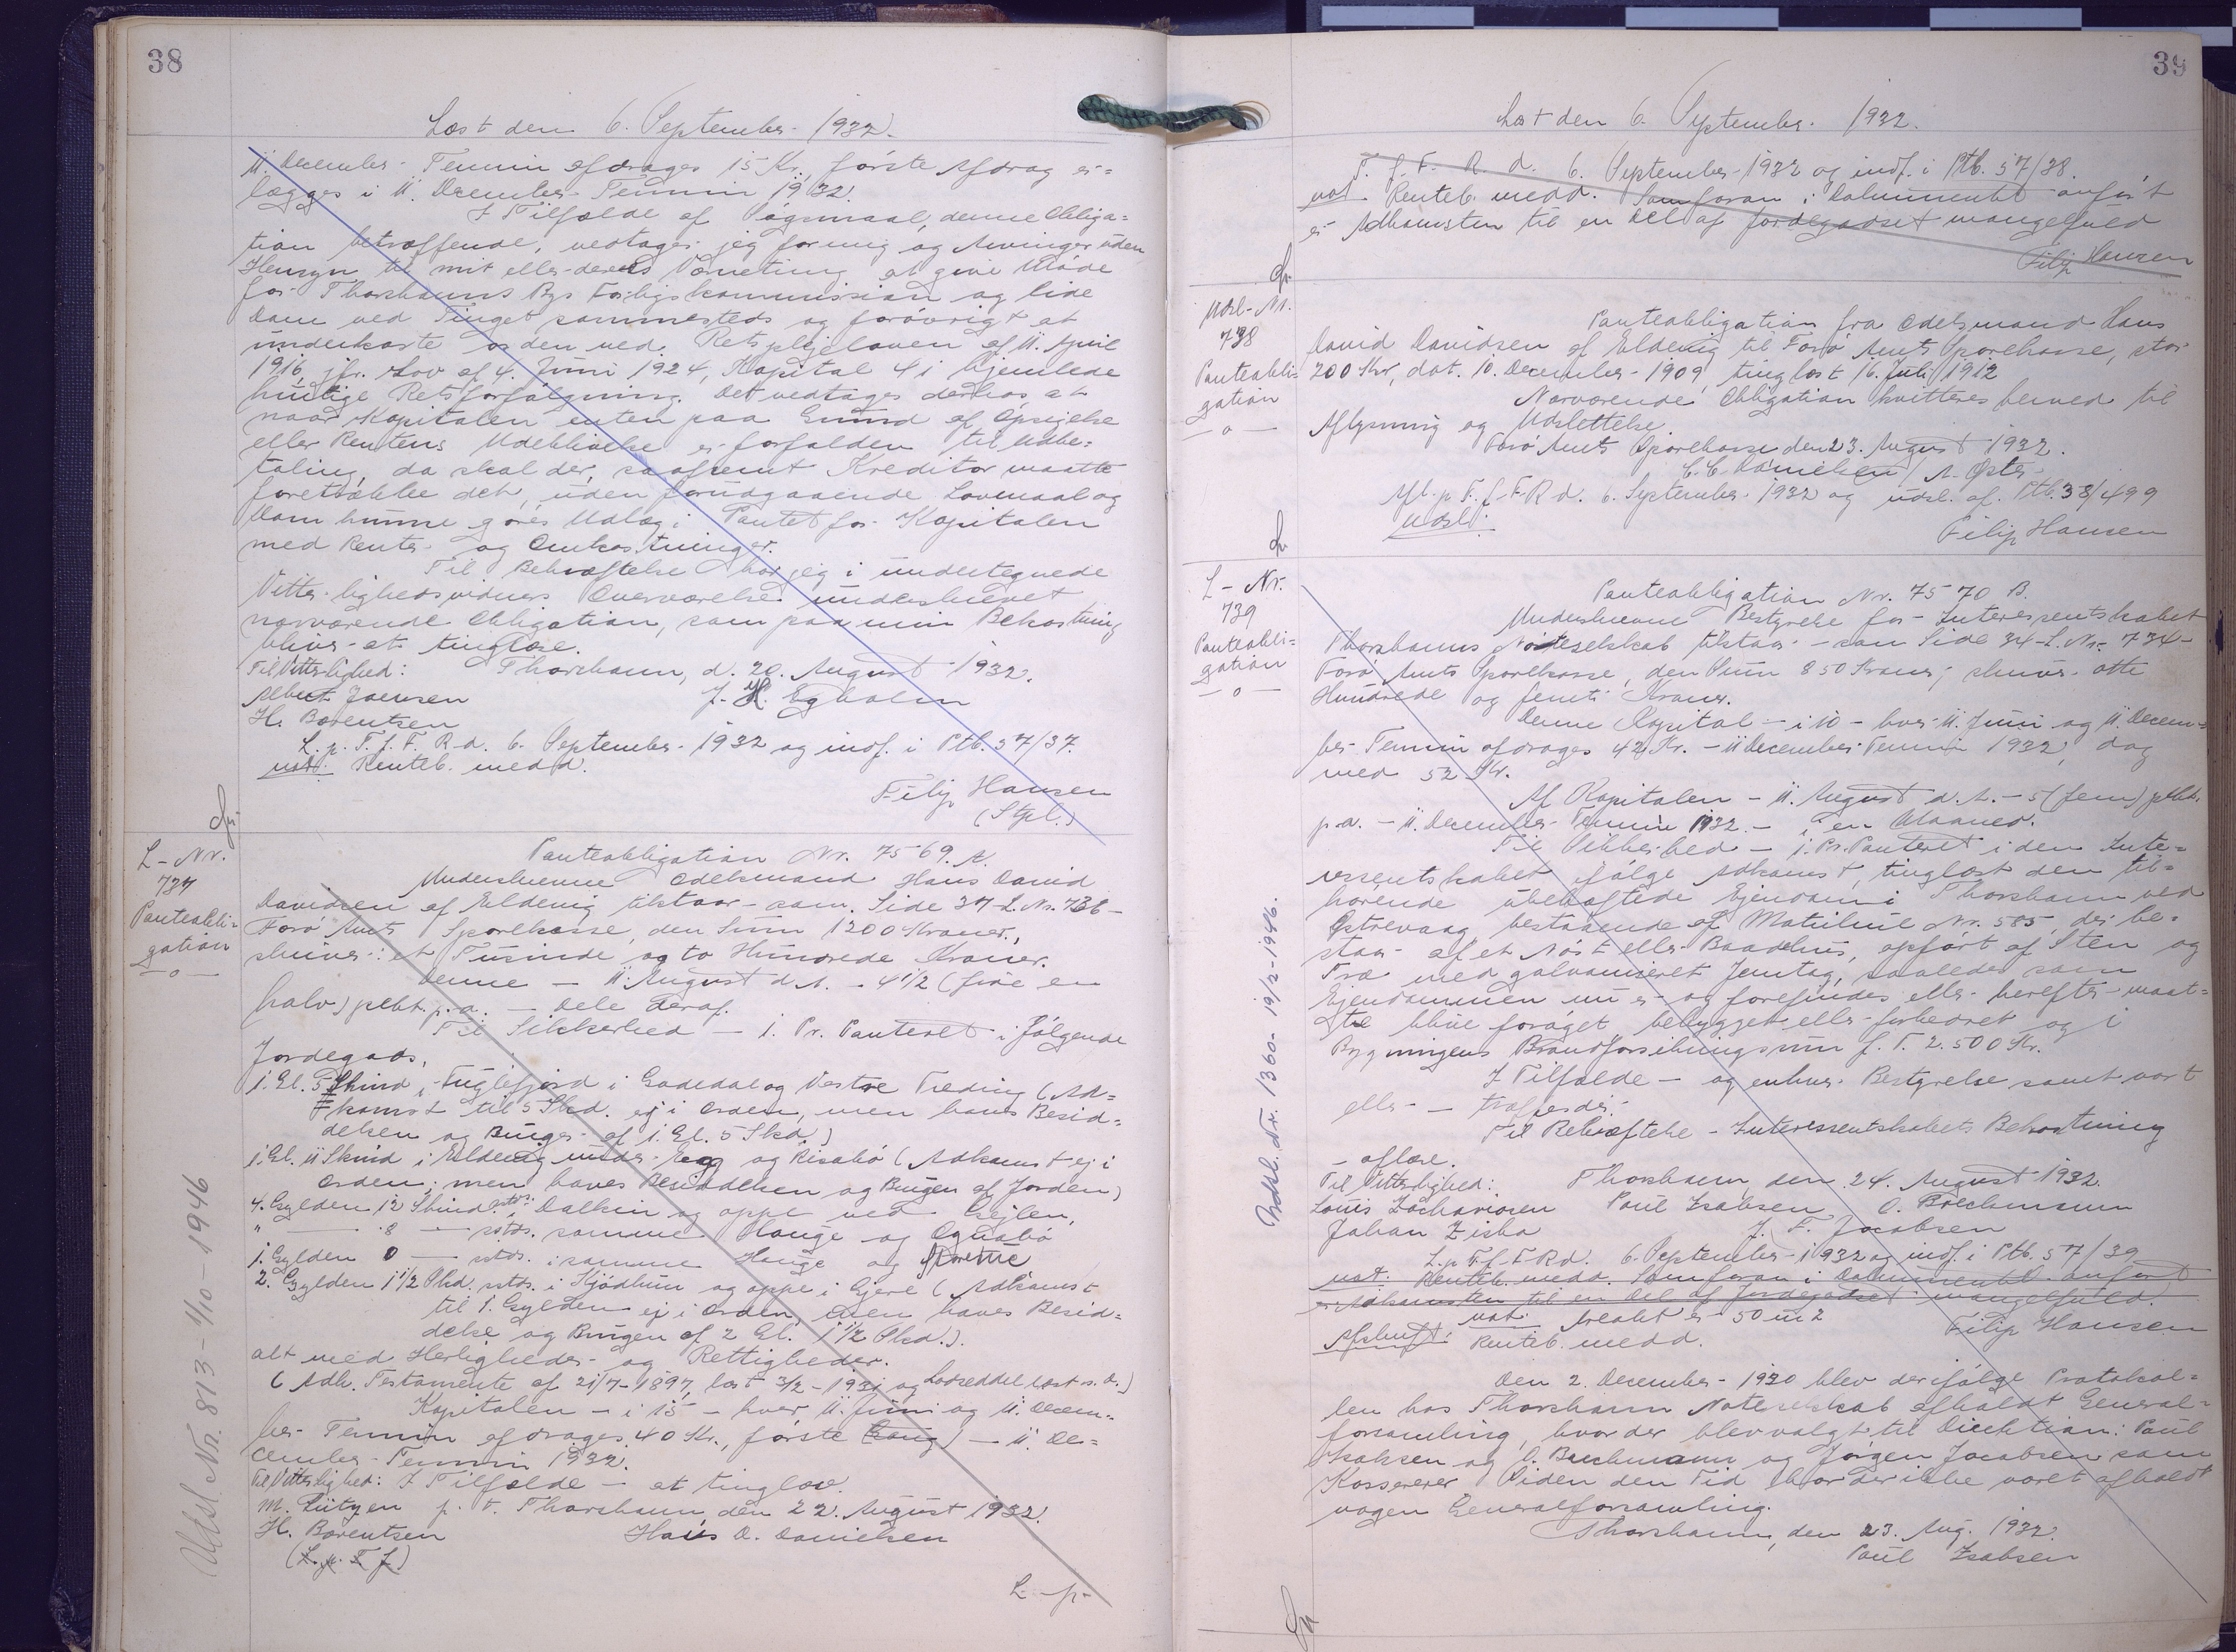 38
Læst den 6. September 1932.
11. December Termin afdrages 15 Kr., første Afdrag er-
lægges i 11. December Termin 1932.
I Tilfælde af Søgsmaal, denne Obliga=
tion betræffende, vedtager jeg for mig og Arvinger uden
Hensyn til mit eller deres Værneting at give Møde
for Thorshavns Bys Forligskommission og lide
Dom ved Tinget sammesteds og forøvrigt at
underkaste os den ved Retsplejeloven af 11. April
1916, jfr. Lov af 4. Juni 1924, Kapital 41 hjemlede
hurtige Retsforfølgning. Det vedtages derhos, at
naar Kapitalen enten paa Grund af Opsigelse
eller Rentens Udeblivelse er forfalden til Udbe=
taling, da skal der, saafremt Kreditor maatte
foretrække det, uden forudgaaende Lovmaal og
Dom kunne gøres Udlæg i Pantet for Kapitalen
med Renter og Omkostninger.
Til Bekræftelse har jeg i undertegnede
Vitterlighedsvidners Overværelse underskrevet
nærværende Obligation, som paa min Bekostning
bliver at tinglæse.
Til Vitterlighed: Thorshavn, d. 20. August 1932.
Albert Joensen J. H. Egholm
H. Barentsen
L. p. T. f. F. R d. 6. September 1932 og indf. i Ptb. 57/37.
not: Renteb. medd.
Filip Hansen
(Stpl.)
L-Nr.
737
Panteobli-
gation
-o-
Panteobligation Nr. 7569. A.
Underskrevne Odelsmand Hans David
Davidsen af Eldevig tilstaar - som Side 37 L. Nr. 736 -
Færø Amts Sparekasse, den Sum 1200 Kroner,
skriver: et Tusinde og to Hundrede Kroner.
Denne - 11. August d. A. - 4 1/2 (fire en
halv) pCt. p. a. - Dele deraf.
Til Sikkerhed - 1. Pr. Panteret i følgende
Jordegods,
1. Gl. 5 Skind i Fuglefjord i Gadedal og Vestre Tredring (Ad=
komst til 5 Skd. ej i Orden, men haves Besid=
delsen og Bruges af 1. Gl. 5 Skd.)
1. Gl. 11 Skind i Eldevig under Egg og Risabø (Adkomst ej i
Orden; men haves Besiddelsen og Brugen af Jorden)
4. Gylden 12 Skind sstds. i Dalkin og oppe ved Gejlen,
" — 8 — sstds. samme Hauge og Ognabø
1. Gylden 0 — sstds. i samme Hauge og
2. Gylden 1 1/2 Skd. sstds. i Kjødhun og oppe i Gjere (Adkomst
til 1. Gylden ej i Orden, men haves Besid=
delse og Brugen af 2 Gl. 1 1/2 Skd.).
alt med Herligheder og Rettigheder.
(Adk. Testamente af 21/7-1897, læst 3/2-1931 og Lodseddel læst s. D.)
Kapitalen - i 15 - hver 11. Juni og 11. Decem-
ber Termin afdrages 40 Kr., første (Gang) - 11. De=
cember Termin 1932.
Til Vitterlighed: I Tilfælde - at tinglæse.
M. Lützen p. t. Thorshavn, den 22. August 1932.
H. Barentsen Hans D. Danielsen
(L. p. T f)
L. p.
Udsl. Nr. 813 - 1/10 - 1946
39
Læst den 6. September 1932.
T. f. F. R. d. 6. September 1932 og indf. i Ptb. 57/38.
not Renteb. medd. Som foran i Dokumentet anført
er Adkomsten til en Del af Jordegodset mangelfuld
Filip Hansen
Udsl-Nr.
738
Panteobli-
gation
-o-
Panteobligation fra Odelsmand Hans
David Davidsen af Eldevig til Færø Amts Sparekasse, stor
200 Kr., dat. 10. December 1909, tinglæst 16. Juli 1912
Nærværende Obligation kvitteres herved til
Aflysning og Udslettelse.
Færø Amts Sparekasse den 23. August 1932.
C. C. Danielsen A. Øster
Afl. p. T. f. F. R d. 6. September 1932 og udsl. af Ptb. 38/499
Udsl:
Filip Hansen
L-Nr.
739
Panteobli=
gation
-o-
Panteobligation Nr. 7570 B.
Underskrevne Bestyrelse for Interessentskabet
Thorshavns Noteselskab tilstaar - som Side 34-L. Nr. 734-
Færø Amts Sparekasse, den Sum 850 Kroner, skriver otte
Hundrede og femti Kroner.
Denne Kapital - i 10 - hver 11. Juni og 11. Decem=
ber Termin afdrages 42 Kr. - 11 December Termin 1932, dog
med 52 Kr.
Af Kapitalen - 11. August d. A. - 5 (fem) pCt.
p. a. - 11. December Termin 1932. - i en Maaned.
Til Sikkerhed - 1. Pr. Panteret i den Inte=
ressentskabet ifølge Adkomst, tinglæst den til=
hørende ubehæftede Ejendom i Thorshavn ved
Østrevaag bestaaende af Matrikul Nr. 585, der be=
staar af et Nøst eller Baadehus, opført af Sten og
Træ med galvaniseret Jerntag, saaledes som
Ejendommen nu er og forefindes eller herefter maat=
te blive forøget, bebygget eller forbedret og i
Bygningens Brandforsikringssum f. T. 2.500 Kr.
I Tilfælde - og enhver Bestyrelse samt vort
eller - træffende.
Til Bekræftelse - Interessentskabets Bekostning
- aflæse.
Til Vitterlighed: Thorshavn, den 24. August 1932.
Louis Zachariasen Poul Isaksen O. Brechmann
Johan Ziska J. F. Jacobsen
L. p. T. f. F. R d. 6. September 1932 og indf. i Ptb. 57/39
not: Renteb. medd. Som foran i Dokumentet anført
er Adkomsten til en Del af Jordegodset mangelfuld.
not Arealet er 50 m2
Afskrift: Renteb. medd. Filip Hansen
Den 2. December 1930 blev der ifølge Protokol=
len hos Thorshavn Noteselskab afholdt General=
forsamling, hvor der blev valgt til Direktion: Poul
Isaksen og O. Brechmann og Jørgen Jacobsen som
Kasserer. Siden den Tid har der ikke været afholdt
nogen Generalforsamling.
Thorshavn, den 23. Aug. 1932.
Poul Isaksen
Udsl. Nr. 1360 - 19/12-1946.